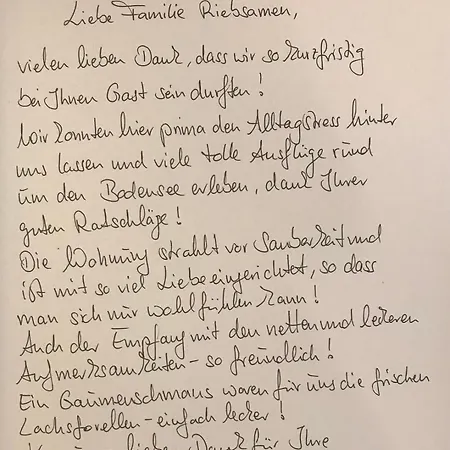 Liebe Familie Riebsamen,
vielen lieben Dank, dass wir so kurzfristig
bei Ihnen Gast sein durften!
Wir konnten hier prima den Alltagsstress hinter
uns lassen und viele tolle Ausflüge rund
um den Bodensee erleben, dank Ihrer
guten Ratschläge!
Die Wohnung strahlt vor Sauberkeit und
ist mit so viel Liebe eingerichtet, so dass
man sich nur wohlfühlen kann!
Auch der Empfang mit den netten und leckeren
Aufmerksamkeiten - so freundlich!
Ein Gaumenschmaus waren für uns die frischen
Lachsforellen - einfach lecker!
Dank für Ihre